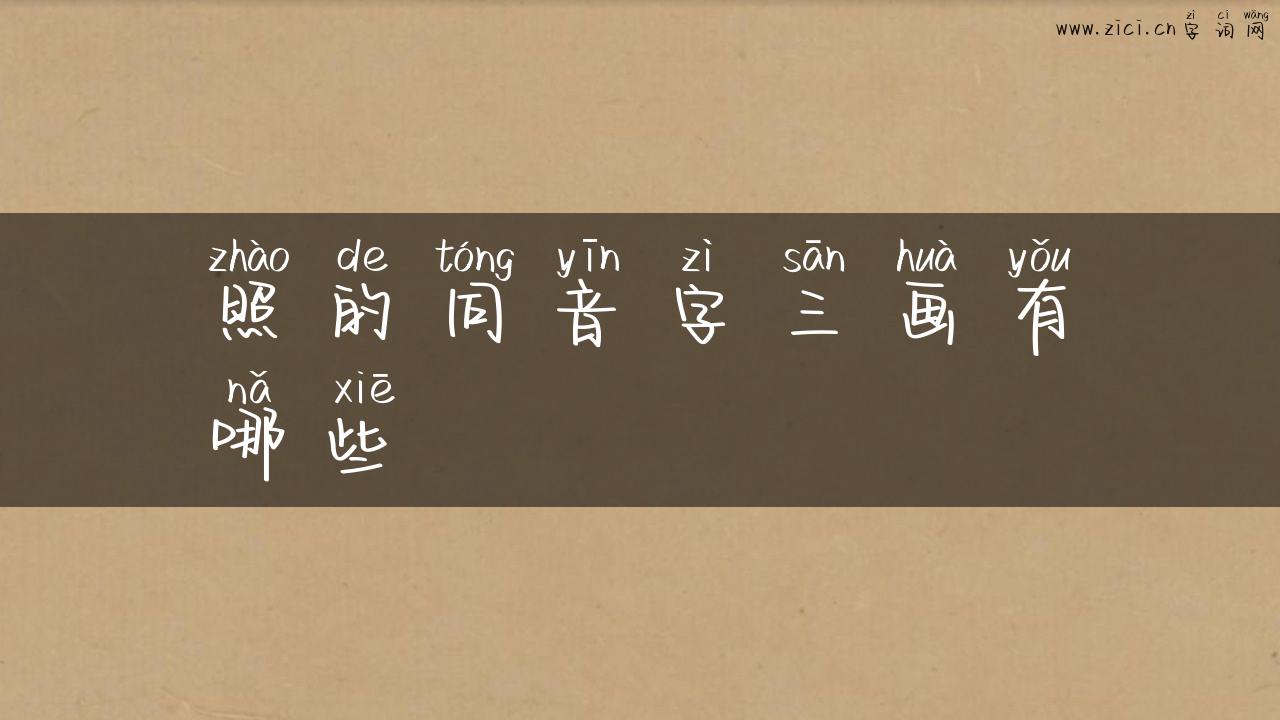 zì cí wǎng
www.zici.cn 字词网
zhào de tóng yīn zì sān huà yǒu
照的同音字三画有
nǎ xiē
哪些